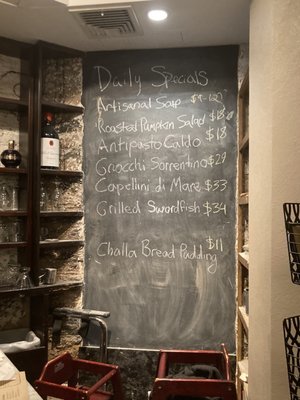 Daily Specials
Artisanal Soap $9-$20
Roasted Pumpkin Salad $18
Antipasto Caldo $18
Gnocchi Sorrentino $29
Capellini di Mare $33
Grilled Swordfish $34
Challa Bread Pudding $11